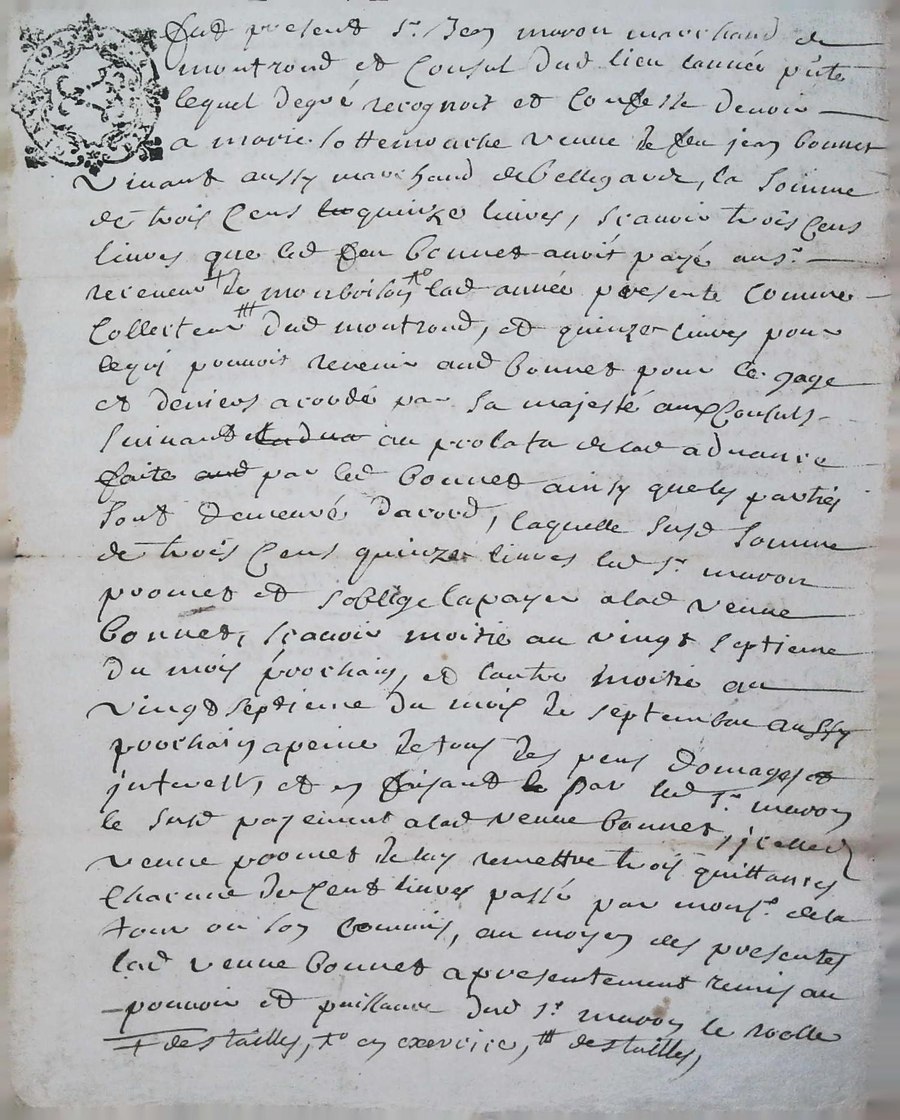 fut present Sr Jean maron marchand de
montrond et Consul dud lieu lannée pnte
lequel degré recognoit et Confesse devoir
a marie sottemoache veuve de feu jean bonnet
vivant aussy marchand de bellegarde, la somme
de trois Cens quinze livres, sçavoir trois Cens
livres que led feu bonnet avoit payé au sr
receveur + de monboison +o lad année presente Comme
Collecteur ⧻ dud montrond, et quinze livres pour
lequi pouvoit revenir aud bonnet pour le gage
et deniers acordé par sa majesté aux Consuls
suivant et au prolata de lad advance
faite aud par led bonnet ainsy que les parties
sont demeuré dacord, laquelle susd somme
de trois Cens quinze livres led Sr maron
promet et soblige la payer a lad veuve
bonnet, sçavoir moitie au vingt septieme
du mois prochain, et lautre moitie au
vingtseptieme du mois de septembre aussy
prochain a peine de tous des pens domages et
jnterests, et en faisant le par led Sr maron
le susd payement a lad veuve bonnet, jcelle
veuve promet de luy remettre trois quittances
Chacune de Cent livres passé par monsr dela
tour ou son Commis, au moyen des presentes
lad veuve bonnet a presentement remis au
pouvoir et puissance dud Sr maron le roolle
+ des tailles, +o en exercice, ⧻ des tailles,